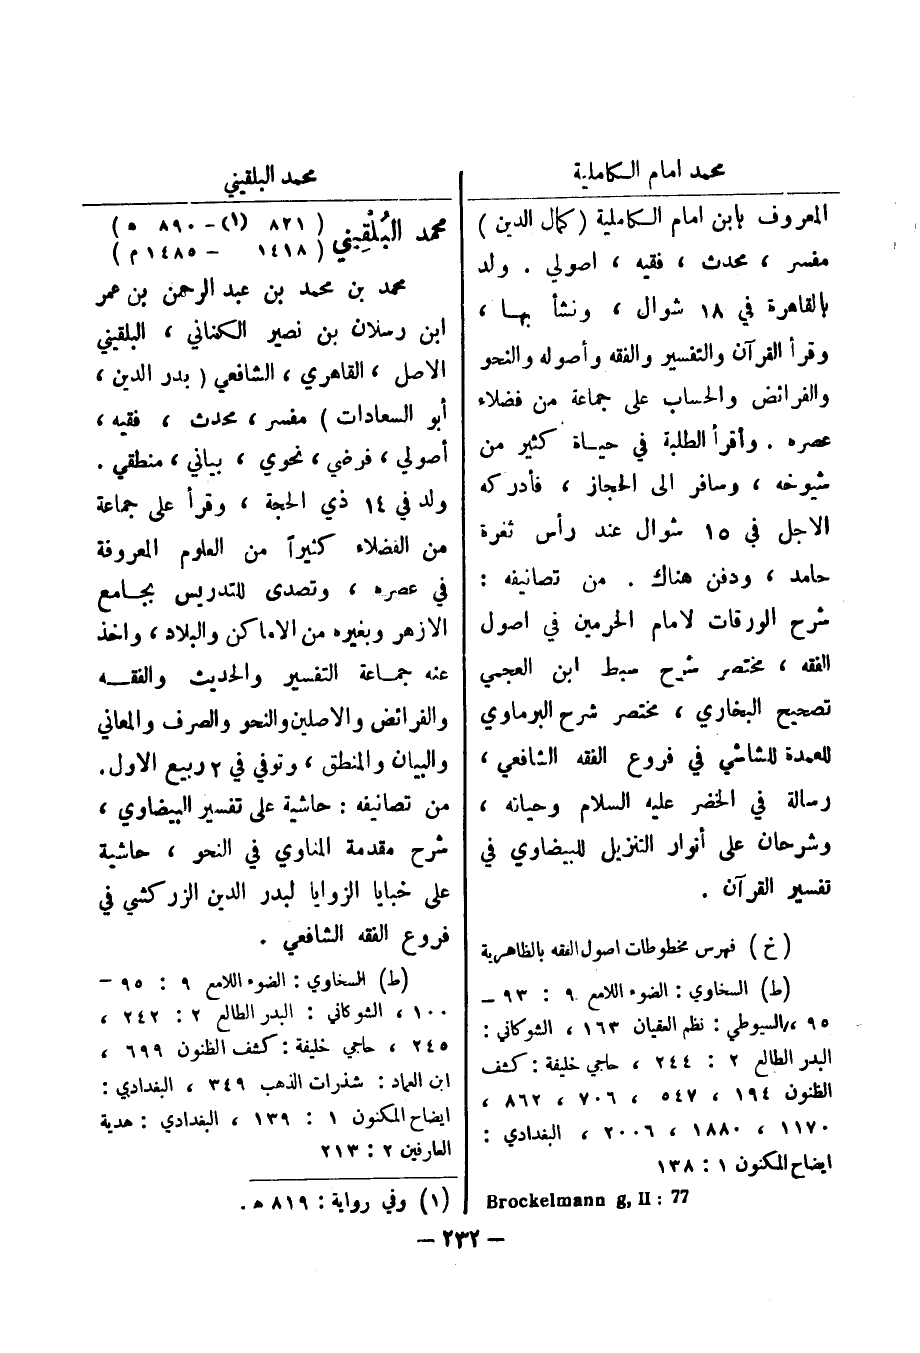 محمد امام الكاملية
المعروف بابن امام الكاملية ( كمال الدين )
مفسر ، محدث ، فقيه ، اصولي . ولد
بالقاهرة في ١٨ شوال ، ونشأ بها ،
وقرأ القرآن والتفسير والفقه وأصوله والنحو
والفرائض والحساب على جماعة من فضلاء
عصره . وأقرأ الطلبة في حياة كثير من
شيوخه ، وسافر الى الحجاز ، فأدركه
الاجل في ١٥ شوال عند رأس ثغرة
حامد ، ودفن هناك . من تصانيفه :
شرح الورقات لامام الحرمين في اصول
الفقه ، مختصر شرح سبط ابن العجمي
تصحيح البخاري ، مختصر شرح البرماوي
للعمدة للشاشي في فروع الفقه الشافعي ،
رسالة في الخضر عليه السلام وحياته ،
وشرحان على أنوار التنزيل للبيضاوي في
تفسير القرآن .
( خ ) فهرس مخطوطات اصول الفقه بالظاهرية
( ط ) السخاوي : الضوء اللامع ٩ : ٩٣ –
٩٥ ، السيوطي : نظم العقيان ١٦٣ ، الشوكاني :
البدر الطالع ٢ : ٢٤٤ ، حاجي خليفة : كشف
الظنون ١٩٤ ، ٥٤٧ ، ٧٠٦ ، ٨٦٢ ،
١١٧٠ ، ١٨٨٠ ، ٢٠٠٦ ، البغدادي :
ايضاح المكنون ١ : ١٣٨
Brockelmann g, II : 77
محمد البلقيني
محمد البُلْقِيني ( ٨٢١ (١) – ٨٩٠ ه )
( ١٤١٨ – ١٤٨٥ م )
محمد بن محمد بن عبد الرحمن بن عمر
ابن رسلان بن نصير الكناني ، البلقيني
الاصل ، القاهري ، الشافعي ( بدر الدين ،
أبو السعادات ) مفسر ، محدث ، فقيه ،
أصولي ، فرضي ، نحوي ، بياني ، منطقي .
ولد في ١٤ ذي الحجة ، وقرأ على جماعة
من الفضلاء كثيراً من العلوم المعروفة
في عصره ، وتصدى للتدريس بجامع
الازهر وبغيره من الاماكن والبلاد ، واخذ
عنه جماعة التفسير والحديث والفقه
والفرائض والاصلين والنحو والصرف والمعاني
والبيان والمنطق ، وتوفي في ٢ ربيع الاول .
من تصانيفه : حاشية على تفسير البيضاوي ،
شرح مقدمة المناوي في النحو ، حاشية
على خبايا الزوايا لبدر الدين الزركشي في
فروع الفقه الشافعي .
( ط ) السخاوي : الضوء اللامع ٩ : ٩٥ –
١٠٠ ، الشوكاني : البدر الطالع ٢ : ٢٤٢ ،
٢٤٥ ، حاجي خليفة : كشف الظنون ٦٩٩ ،
ابن العماد : شذرات الذهب ٣٤٩ ، البغدادي :
ايضاح المكنون ١ : ١٣٩ ، البغدادي : هدية
العارفين ٢ : ٢١٣
(١) وفي رواية : ٨١٩ ه .
– ٢٣٢ –